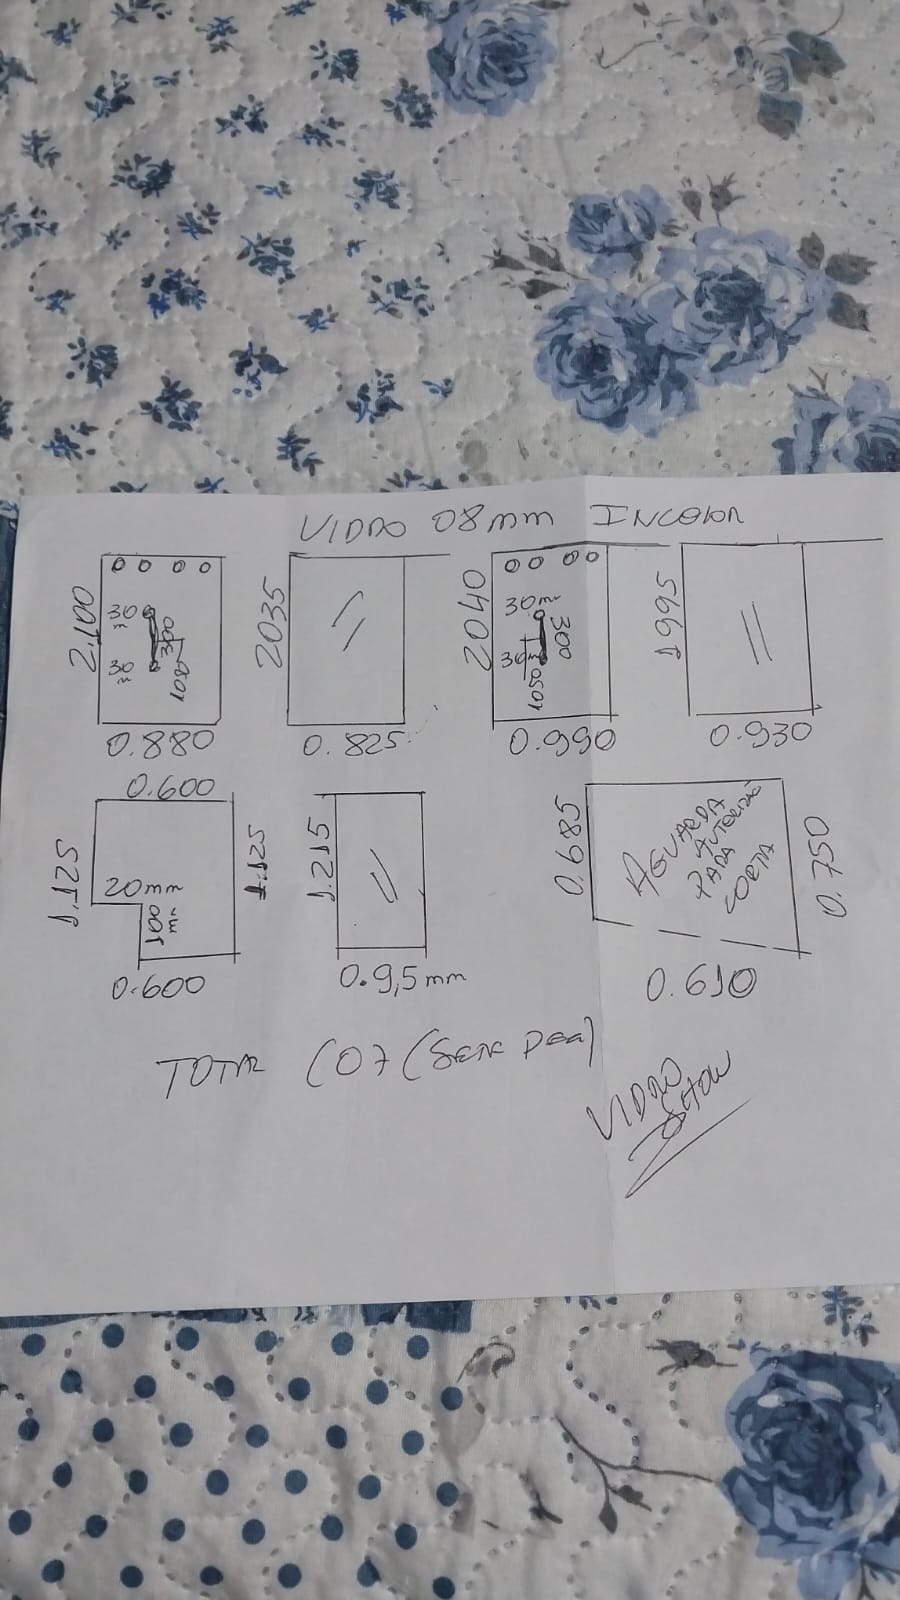 VIDRO 08mm INCOLOR
2.100
30
m
30
m
300
1050
0.880
2035
0.825
2040
30m
30m
300
1050
0.990
1995
0.930
0.600
1.125
20mm
100
mm
1.125
0.600
1.215
0.9,5mm
0.685
AGUARDA
AUTORIZAÇÃO
PARA
CORTA
0.750
0.610
TOTAL (07 (SETE
VIDRO